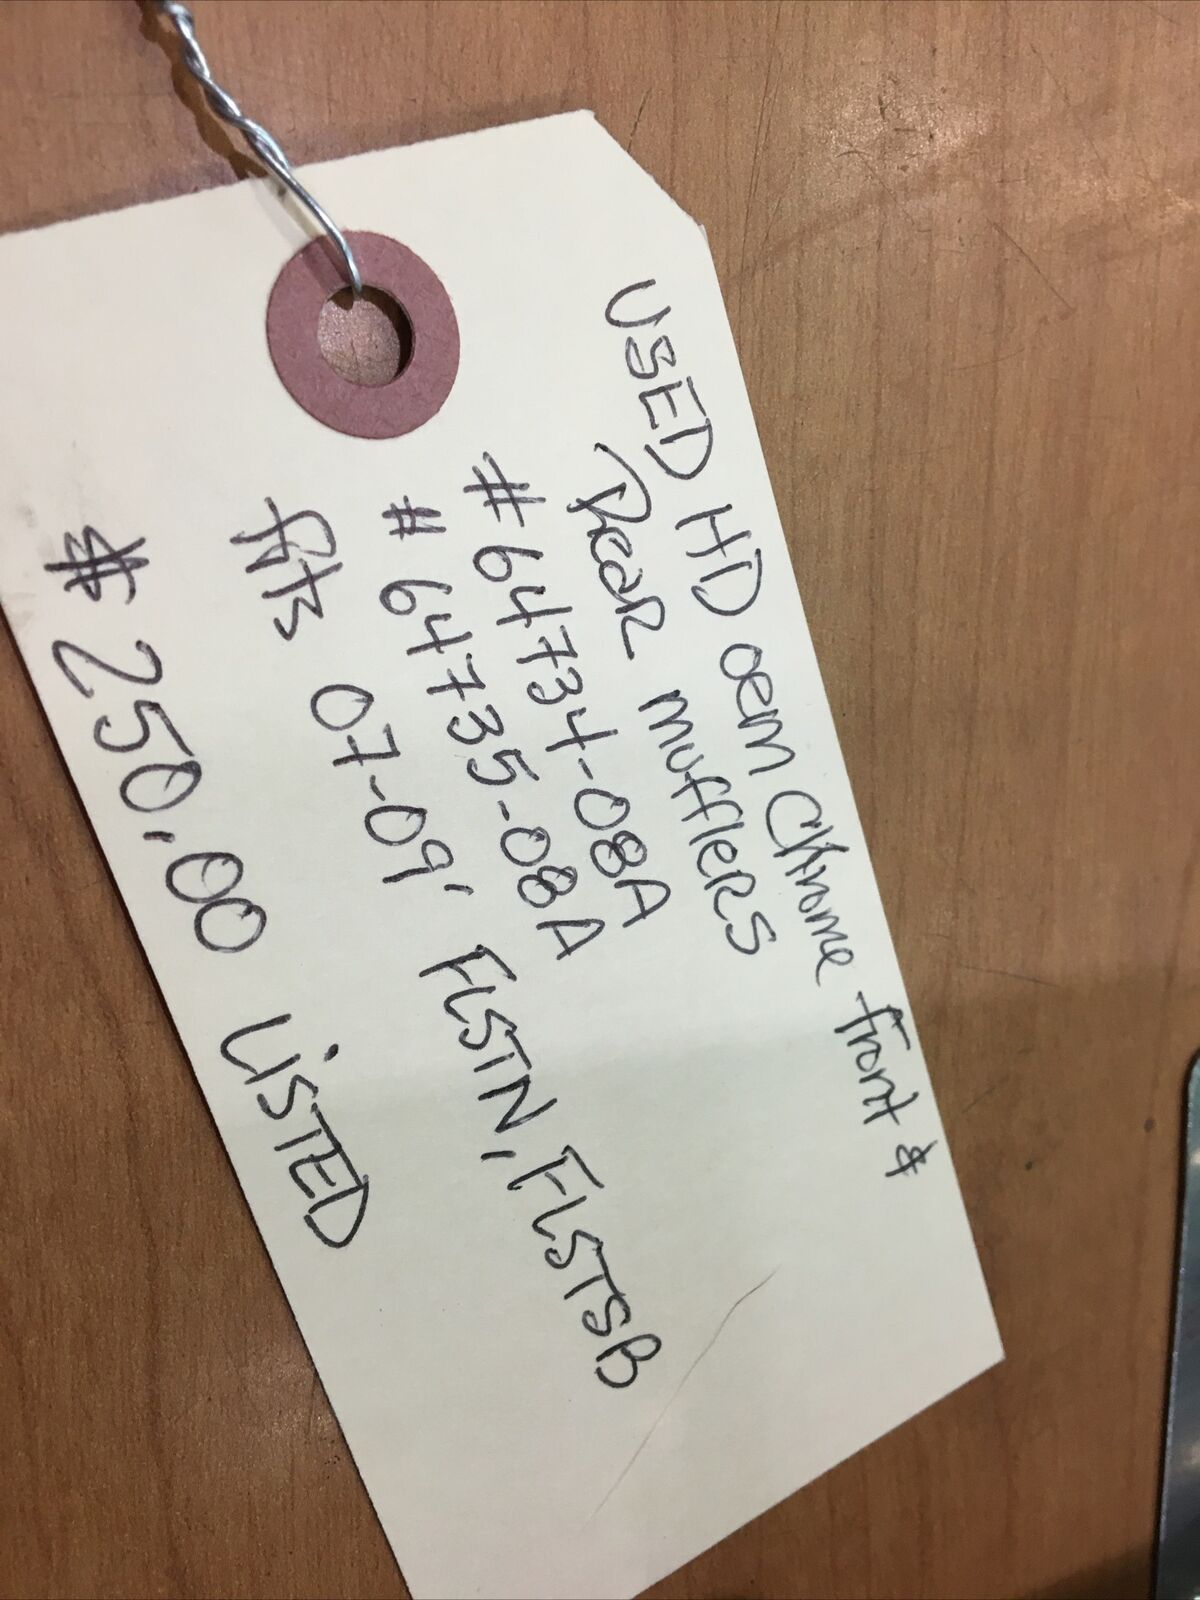 USED HD oem Chrome front &
Rear mufflers
# 64734-08A
# 64735-08A
fits 07-09' FLSTN, FLSTSB
$ 250.00 LiSTED